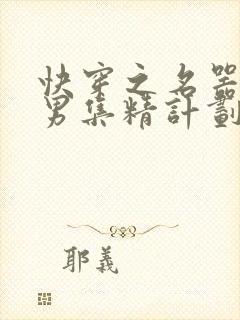 快穿之名器
男集精計劃
耶義